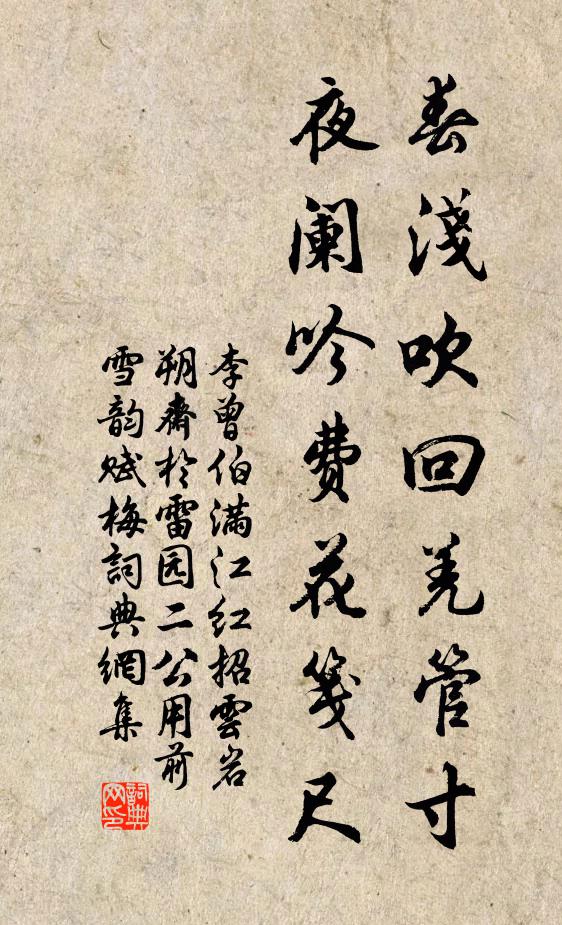 春淺吹回羌管寸
夜阑吟费花箋尺
李曾伯满江红招雲岩
朔齋於雷园二公用前
雪韵赋梅詞典網集
詞典
网印